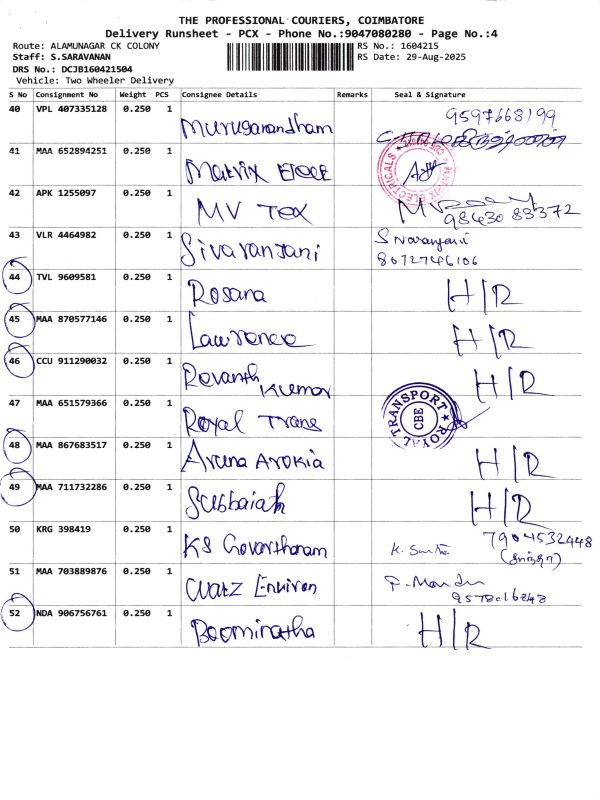 THE PROFESSIONAL COURIERS, COIMBATORE
Delivery Runsheet - PCX - Phone No.:9047080280 - Page No.:4
Route: ALAMUNAGAR CK COLONY RS No.: 1604215
Staff: S.SARAVANAN RS Date: 29-Aug-2025
DRS No.: DCJB160421504
Vehicle: Two Wheeler Delivery
S No Consignment No Weight PCS Consignee Details Remarks Seal & Signature
40 VPL 407335128 0.250 1 Murugarandham 9597668199
41 MAA 652894251 0.250 1 Matrix Elect ELECTRICALS
42 APK 1255097 0.250 1 MV Tex 98430 83372
43 VLR 4464982 0.250 1 Sivaranjani Sivaranjani
8072746106
44 TVL 9609581 0.250 1 Rosana H/R
45 MAA 870577146 0.250 1 Lawrence H/R
46 CCU 911290032 0.250 1 Revanth Kumar H/R
47 MAA 651579366 0.250 1 Royal Trans ROYAL TRANSPORT CBE
48 MAA 867683517 0.250 1 Aruna Arokia H/R
49 MAA 711732286 0.250 1 Subbaiah H/R
50 KRG 398419 0.250 1 KS Govartharam K. Santhe 7904532448
51 MAA 703889876 0.250 1 Watz Environ
9578016848
52 NDA 906756761 0.250 1 Boominatha H/R